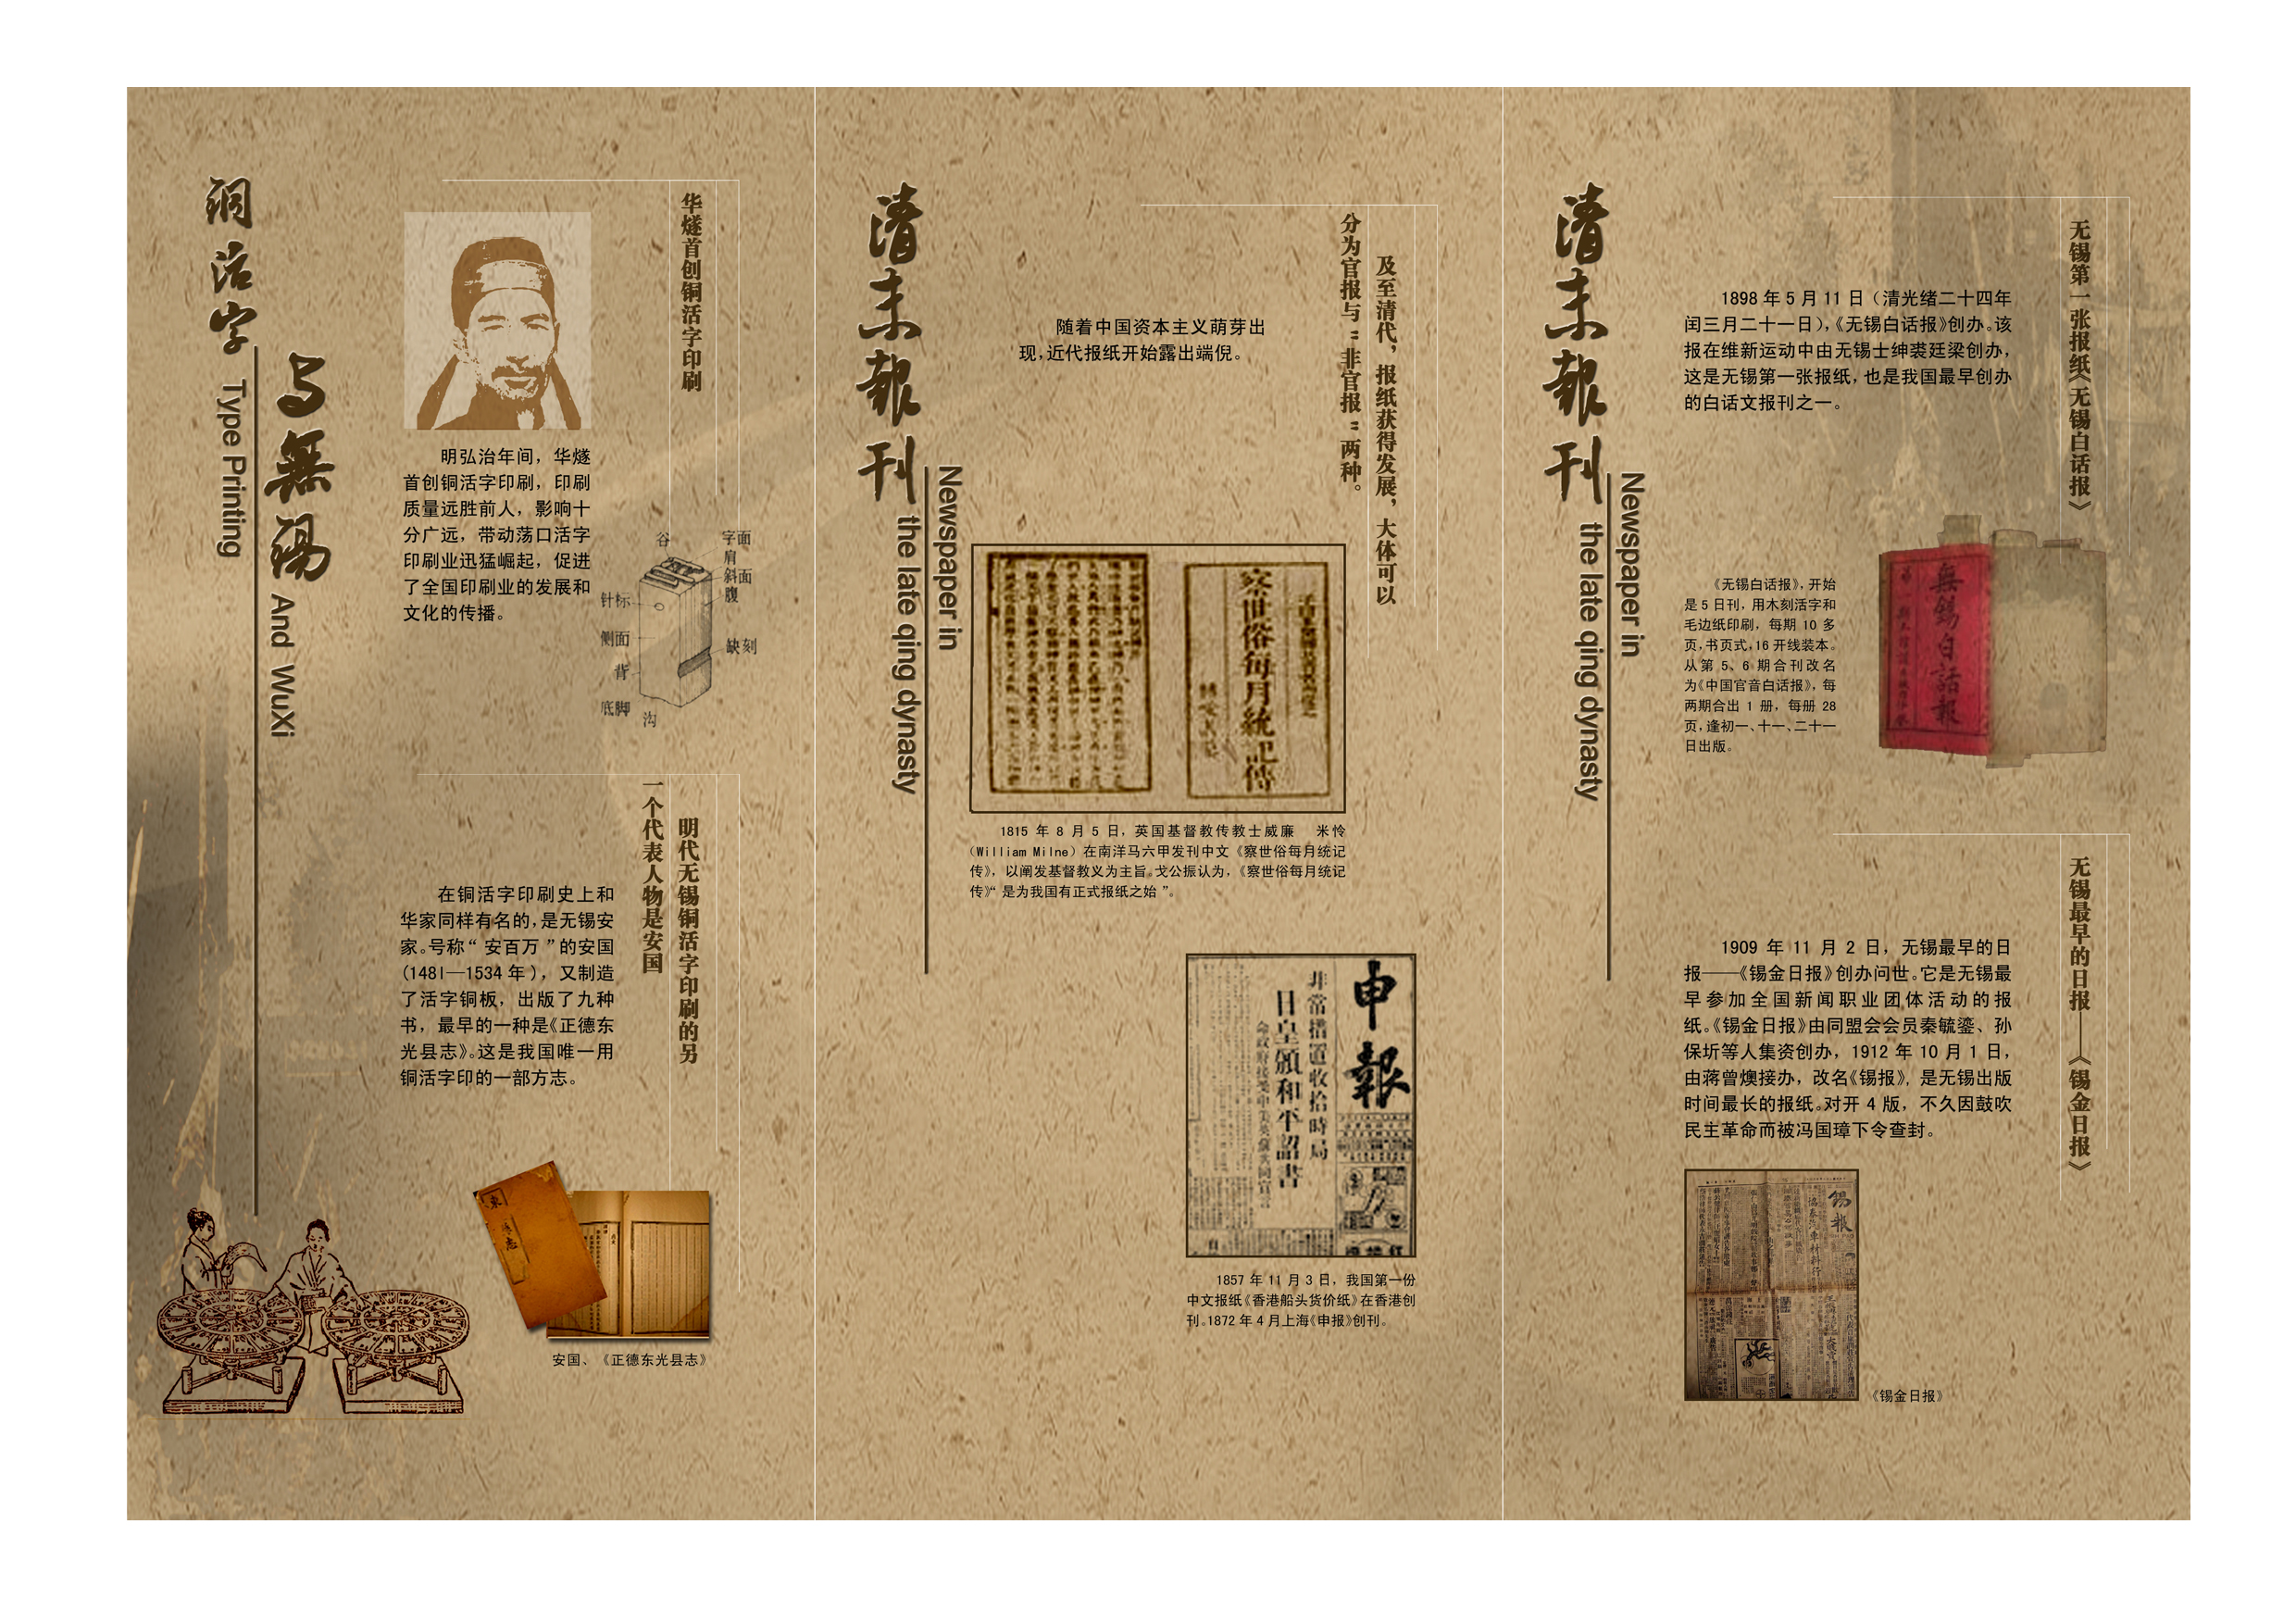 铜活字
Type Printing
与無锡
And WuXi
华燧首创铜活字印刷
明弘治年间，华燧
首创铜活字印刷，印刷
质量远胜前人，影响十
分广远，带动荡口活字
印刷业迅猛崛起，促进
了全国印刷业的发展和
文化的传播。
谷
字面
肩
斜面
腹
针标
侧面
缺刻
背
底脚
沟
明代无锡铜活字印刷的另
一个代表人物是安国
在铜活字印刷史上和
华家同样有名的，是无锡安
家。号称“安百万”的安国
(1481—1534年)，又制造
了活字铜板，出版了九种
书，最早的一种是《正德东
光县志》。这是我国唯一用
铜活字印的一部方志。
安国、《正德东光县志》
清末報刊
Newspaper in
the late qing dynasty
及至清代，报纸获得发展，大体可以
分为官报与“非官报”两种。
随着中国资本主义萌芽出
现，近代报纸开始露出端倪。
察世俗每月統記傳
1815 年 8 月 5 日，英国基督教传教士威廉 米怜
（William Milne）在南洋马六甲发刊中文《察世俗每月统记
传》，以阐发基督教义为主旨。戈公振认为，《察世俗每月统记
传》“是为我国有正式报纸之始”。
申報
非常措置收拾時局
日皇頒和平詔書
1857 年 11 月 3 日，我国第一份
中文报纸《香港船头货价纸》在香港创
刊。1872 年 4 月上海《申报》创刊。
清末報刊
Newspaper in
the late qing dynasty
无锡第一张报纸《无锡白话报》
1898 年 5 月 11 日（清光绪二十四年
闰三月二十一日），《无锡白话报》创办。该
报在维新运动中由无锡士绅裘廷梁创办，
这是无锡第一张报纸，也是我国最早创办
的白话文报刊之一。
《无锡白话报》，开始
是 5 日刊，用木刻活字和
毛边纸印刷，每期 10 多
页，书页式，16 开线装本。
从第 5、6 期合刊改名
为《中国官音白话报》，每
两期合出 1 册，每册 28
页，逢初一、十一、二十一
日出版。
無錫白話報
无锡最早的日报——《锡金日报》
1909 年 11 月 2 日，无锡最早的日
报——《锡金日报》创办问世。它是无锡最
早参加全国新闻职业团体活动的报
纸。《锡金日报》由同盟会会员秦毓鎏、孙
保圻等人集资创办，1912 年 10 月 1 日，
由蒋曾燠接办，改名《锡报》，是无锡出版
时间最长的报纸。对开 4 版，不久因鼓吹
民主革命而被冯国璋下令查封。
錫報
《锡金日报》